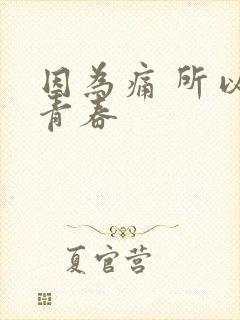 因為痛 所以
青春
夏官营